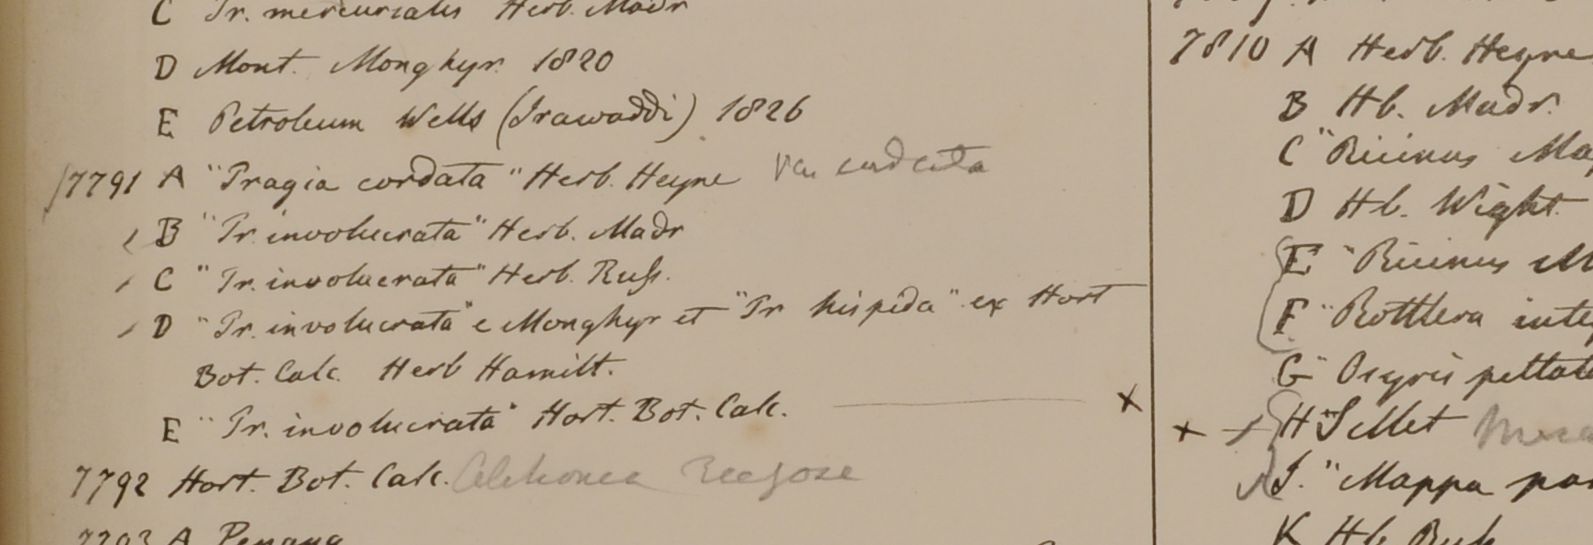 C Tr. mercurialis Herb. Madr
D Mont. Monghyr. 1820
E Petroleum Wells (Irawaddi) 1826
7791 A "Tragia cordata" Herb. Heyne Var cordata
B "Tr. involucrata" Herb. Madr
C "Tr. involucrata" Herb. Russ.
D "Tr. involucrata" e Monghyr et "Tr hispida" ex Hort
Bot. Calc. Herb Hamilt.
E "Tr. involucrata" Hort. Bot. Calc. x
7792 Hort. Bot. Calc.
7793 A Penang
7810 A Herb. Heyne
B Hb. Madr.
C "Ricinus Ma
D Hb. Wight
E "Ricinus M
F "Rottlera inte
G "Osyris peltat
x H "Sillet
J. "Mappa
K Hb Russ